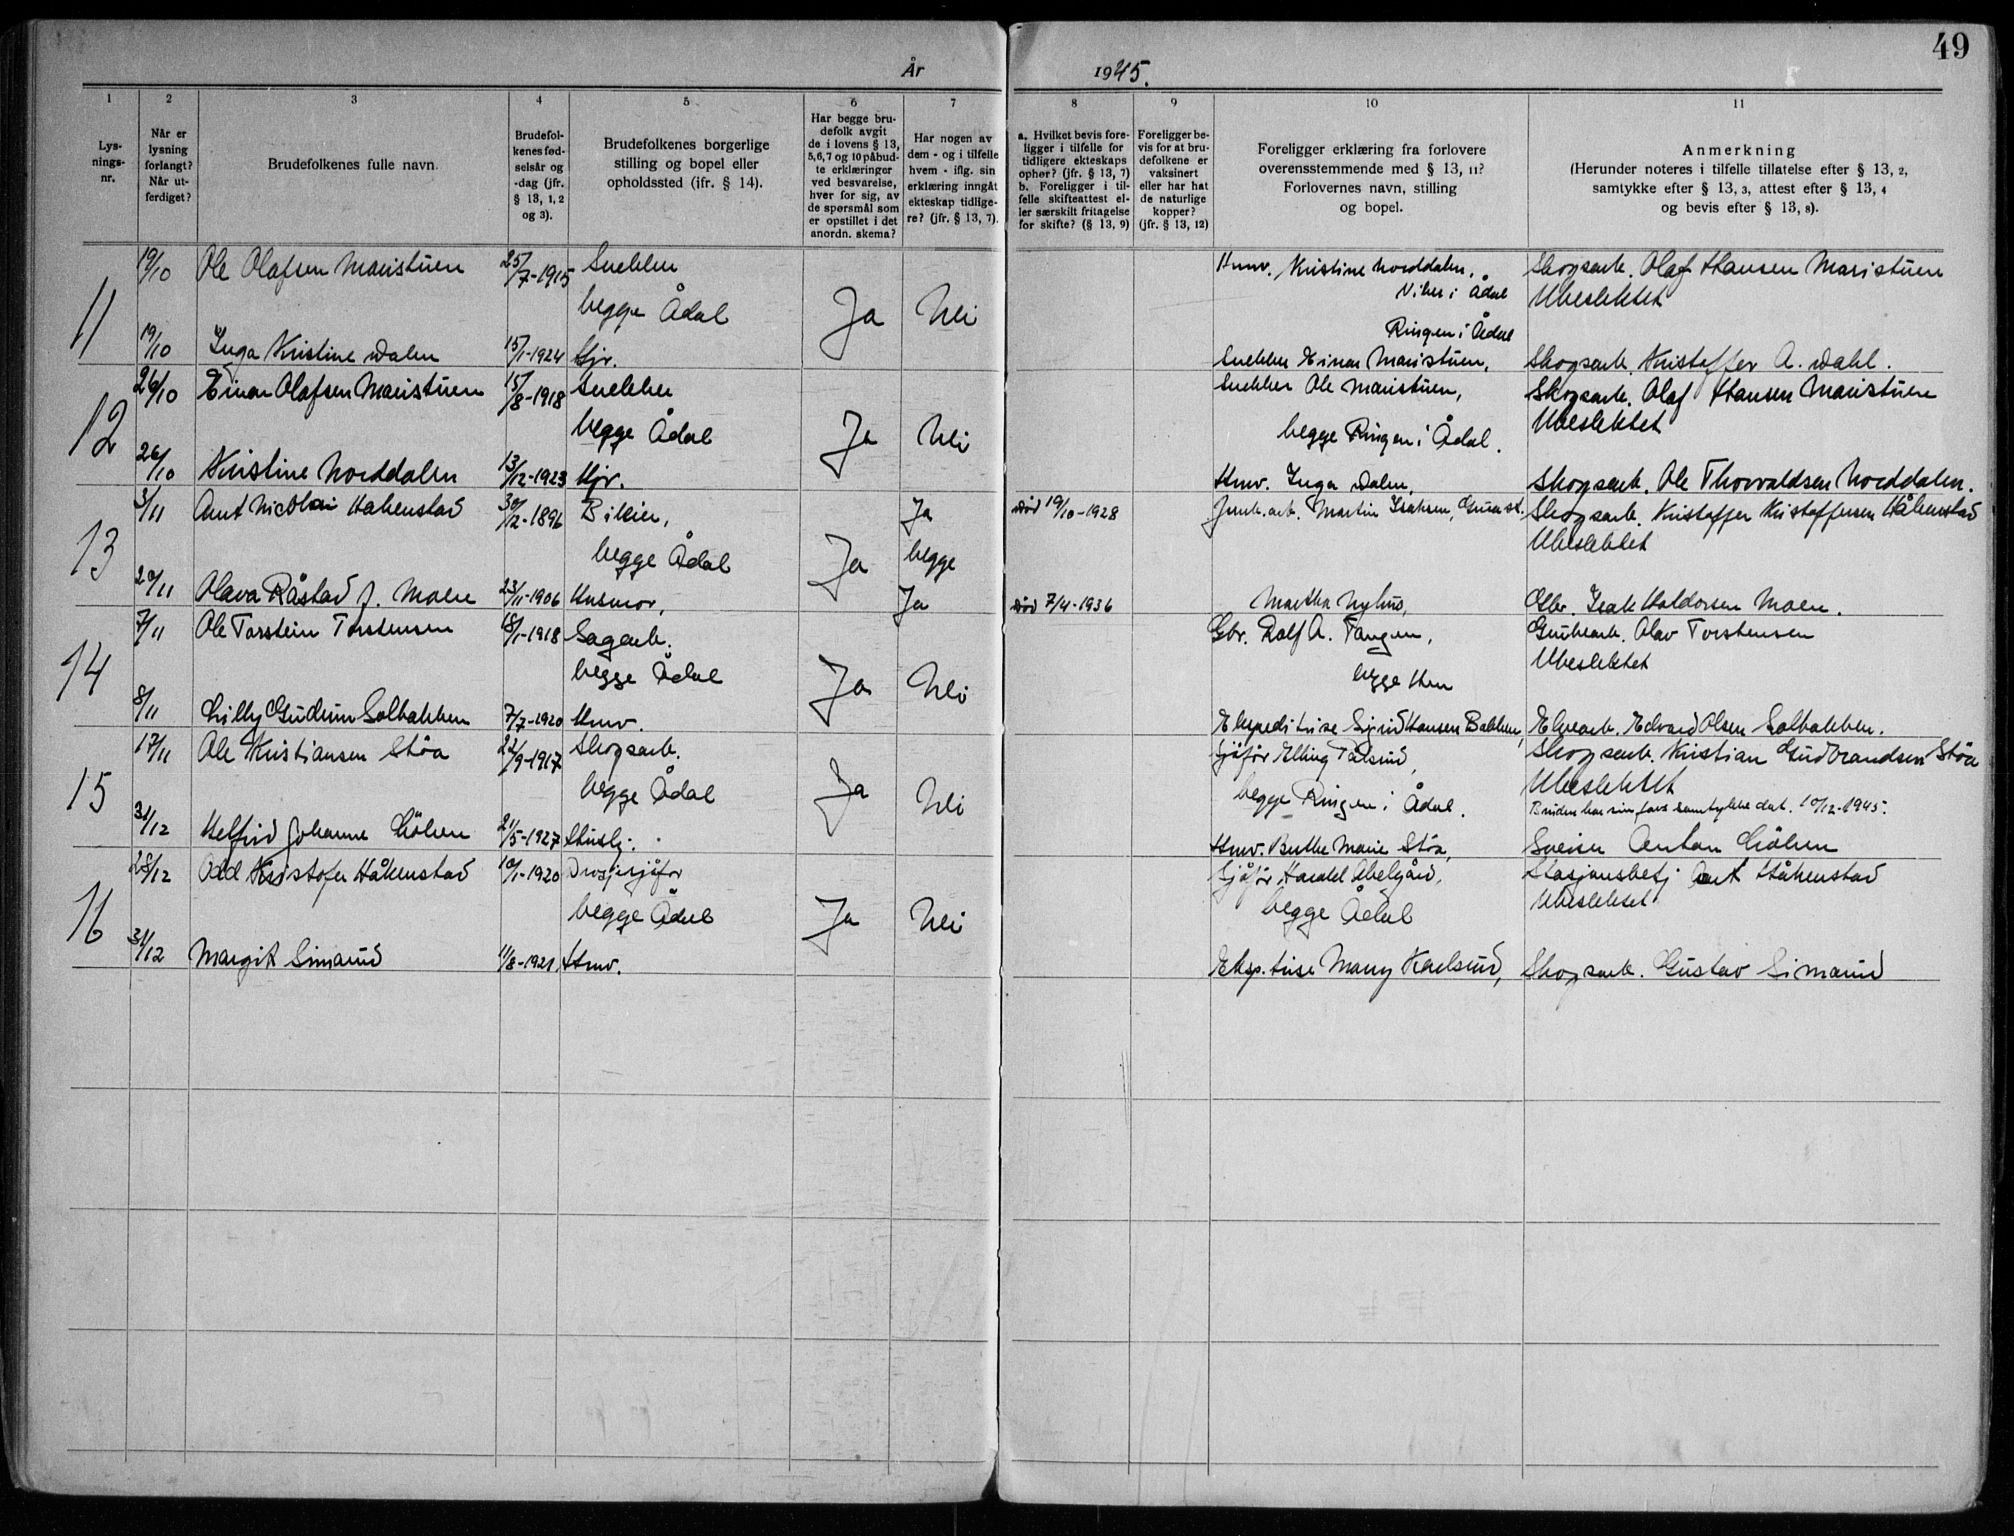 49
År 1945.
1 2 3 4 5 6 7 8 9 10 11
Lys-
nings-
nr.
Når er
lysning
forlangt?
Når ut-
ferdiget?
Brudefolkenes fulle navn.
Brudefol-
kenes fød-
selsår og
-dag (jfr.
§ 13, 1, 2
og 3).
Brudefolkenes borgerlige
stilling og bopel eller
opholdssted (ifr. § 14).
Har begge bru-
defolk avgit
de i lovens § 13,
5, 6, 7 og 10 påbud-
te erklæringer
ved besvarelse,
hver for sig, av
de spørsmål som
er opstillet i det
anordn. skema?
Har nogen av
dem - og i tilfelle
hvem - iflg. sin
erklæring inngåt
ekteskap tidlige-
re? (jfr. § 13, 7).
a. Hvilket bevis fore-
ligger i tilfelle for
tidligere ekteskaps
ophør? (jfr. § 13, 7)
b. Foreligger i til-
felle skifteattest el-
ler særskilt fritagelse
for skifte? (§ 13, 9)
Foreligger be-
vis for at bru-
defolkene er
vaksinert
eller har hat
de naturlige
kopper?
(jfr. § 13, 12)
Foreligger erklæring fra forlovere
overensstemmende med § 13, 11?
Forlovernes navn, stilling
og bopel.
Anmerkning
(Herunder noteres i tilfelle tillatelse efter § 13, 2,
samtykke efter § 13, 3, attest efter § 13, 4
og bevis efter § 13, 8).
19/10 Ole Olafsen Maristuen 25/7-1915 Snekker Hmv. Kristine Norddalen, Skogsarb. Olaf Hansen Maristuen
11 begge Ådal Ja Nei Viker i Ådal Ubeslektet
Ringen i Ådal
19/10 Inga Kristine Dalen 15/1-1924 Hjv. Snekker Einar Maristuen, Skogsarb. Kristoffer A. Dahl.
26/10 Einar Olafsen Maristuen 15/8-1918 Snekker Snekker Ole Maristuen, Skogsarb. Olaf Hansen Maristuen
12 begge Ådal Ja Nei begge Ringen i Ådal. Ubeslektet
26/10 Kristine Norddalen 13/12-1923 Hjv. Hmv. Inga Dalen, Skogsarb. Ole Thorvaldsen Norddalen.
3/11 Arnt Nicolai Håkenstad 30/12-1896 Bileier, Ja død 19/10-1928 Jernb.arb. Martin Isaksen, Skogsarb. Kristoffer Kristoffersen Håkenstad
13 begge Ådal Ja begge Ubeslektet
20/11 Olava Råstad f. Moen 23/11-1906 Husmor, Ja død 7/4-1936 Martha Nyhus, Gbr. Isak Haldorsen Moen.
7/11 Ole Torstein Torstensen 18/1-1918 Sagarb. Gbr. Rolf A. Tangen, Grubearb. Olav Torstensen
14 begge Ådal Ja Nei begge Hen Ubeslektet
8/11 Lilly Gudrun Solbakken 7/7-1920 Hmv. Ekspeditrise Sigrid Hansen Bakken, Elvearb. Edvard Olsen Solbakken.
17/11 Ole Kristiansen Støa 22/9-1917 Skogsarb. Sjåfør Elling Tålsrud, Skogsarb. Kristian Gudbrandsen Støa
15 begge Ådal Ja Nei begge Ringen i Ådal. Ubeslektet
Bruden har sin fars samtykke dat. 10/12-1945.
31/12 Helfrid Johanne Løken 21/5-1927 Hushj. Hmv. Berthe Marie Støa, Sveiser Anton Løken
28/12 Odd Kristofer Håkenstad 10/1-1920 Drosjesjåfør Sjåfør Harald Abelgård, Stasjonsbetj Arnt Håkenstad
16 begge Ådal Ja Nei begge Ådal Ubeslektet
31/12 Margit Simarud 11/8-1921 Hmv. Eksp.trise Mary Karlsrud, Skogsarb. Gustav Simarud